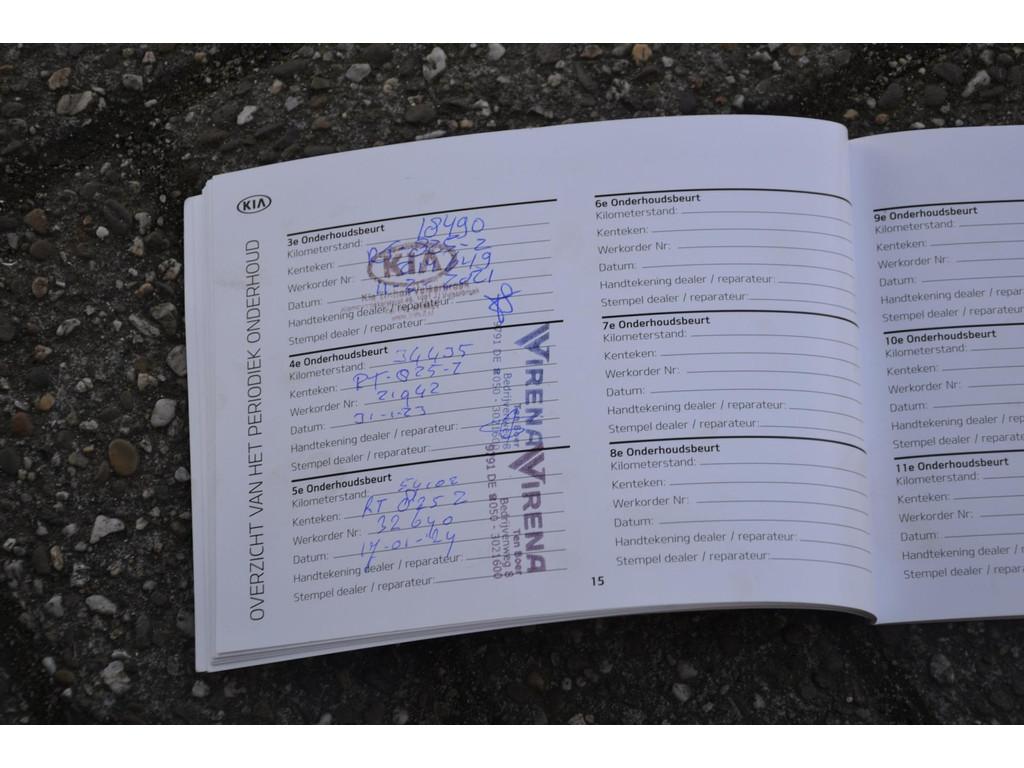 KIA
OVERZICHT VAN HET PERIODIEK ONDERHOUD
3e Onderhoudsbeurt
Kilometerstand: 18490
Kenteken:
Werkorder Nr:
Datum:
Handtekening dealer / reparateur:
Stempel dealer / reparateur:
KIA
4e Onderhoudsbeurt
Kilometerstand: 34435
Kenteken: RT-025-Z
Werkorder Nr: 21942
Datum: 31-1-23
Handtekening dealer / reparateur:
Stempel dealer / reparateur:
VIRENA
Ten Boer
Bedrijvenweg 8
9791 DE 050 - 3021600
5e Onderhoudsbeurt
Kilometerstand: 54108
Kenteken: RT 025 Z
Werkorder Nr: 32640
Datum: 17-01-24
Handtekening dealer / reparateur:
Stempel dealer / reparateur:
VIRENA
Ten Boer
Bedrijvenweg 8
9791 DE 050 - 3021600
15
6e Onderhoudsbeurt
Kilometerstand:
Kenteken:
Werkorder Nr:
Datum:
Handtekening dealer / reparateur:
Stempel dealer / reparateur:
7e Onderhoudsbeurt
Kilometerstand:
Kenteken:
Werkorder Nr:
Datum:
Handtekening dealer / reparateur:
Stempel dealer / reparateur:
8e Onderhoudsbeurt
Kilometerstand:
Kenteken:
Werkorder Nr:
Datum:
Handtekening dealer / reparateur:
Stempel dealer / reparateur:
9e Onderhoudsbeurt
Kilometerstand:
Kenteken:
Werkorder Nr:
Datum:
Handtekening dealer / repara
Stempel dealer / reparateur:
10e Onderhoudsbeurt
Kilometerstand:
Kenteken:
Werkorder Nr:
Datum:
Handtekening dealer / r
Stempel dealer / reparateu
11e Onderhoudsbeurt
Kilometerstand:
Kenteken:
Werkorder Nr:
Datum:
Handtekening dealer /
Stempel dealer / repara